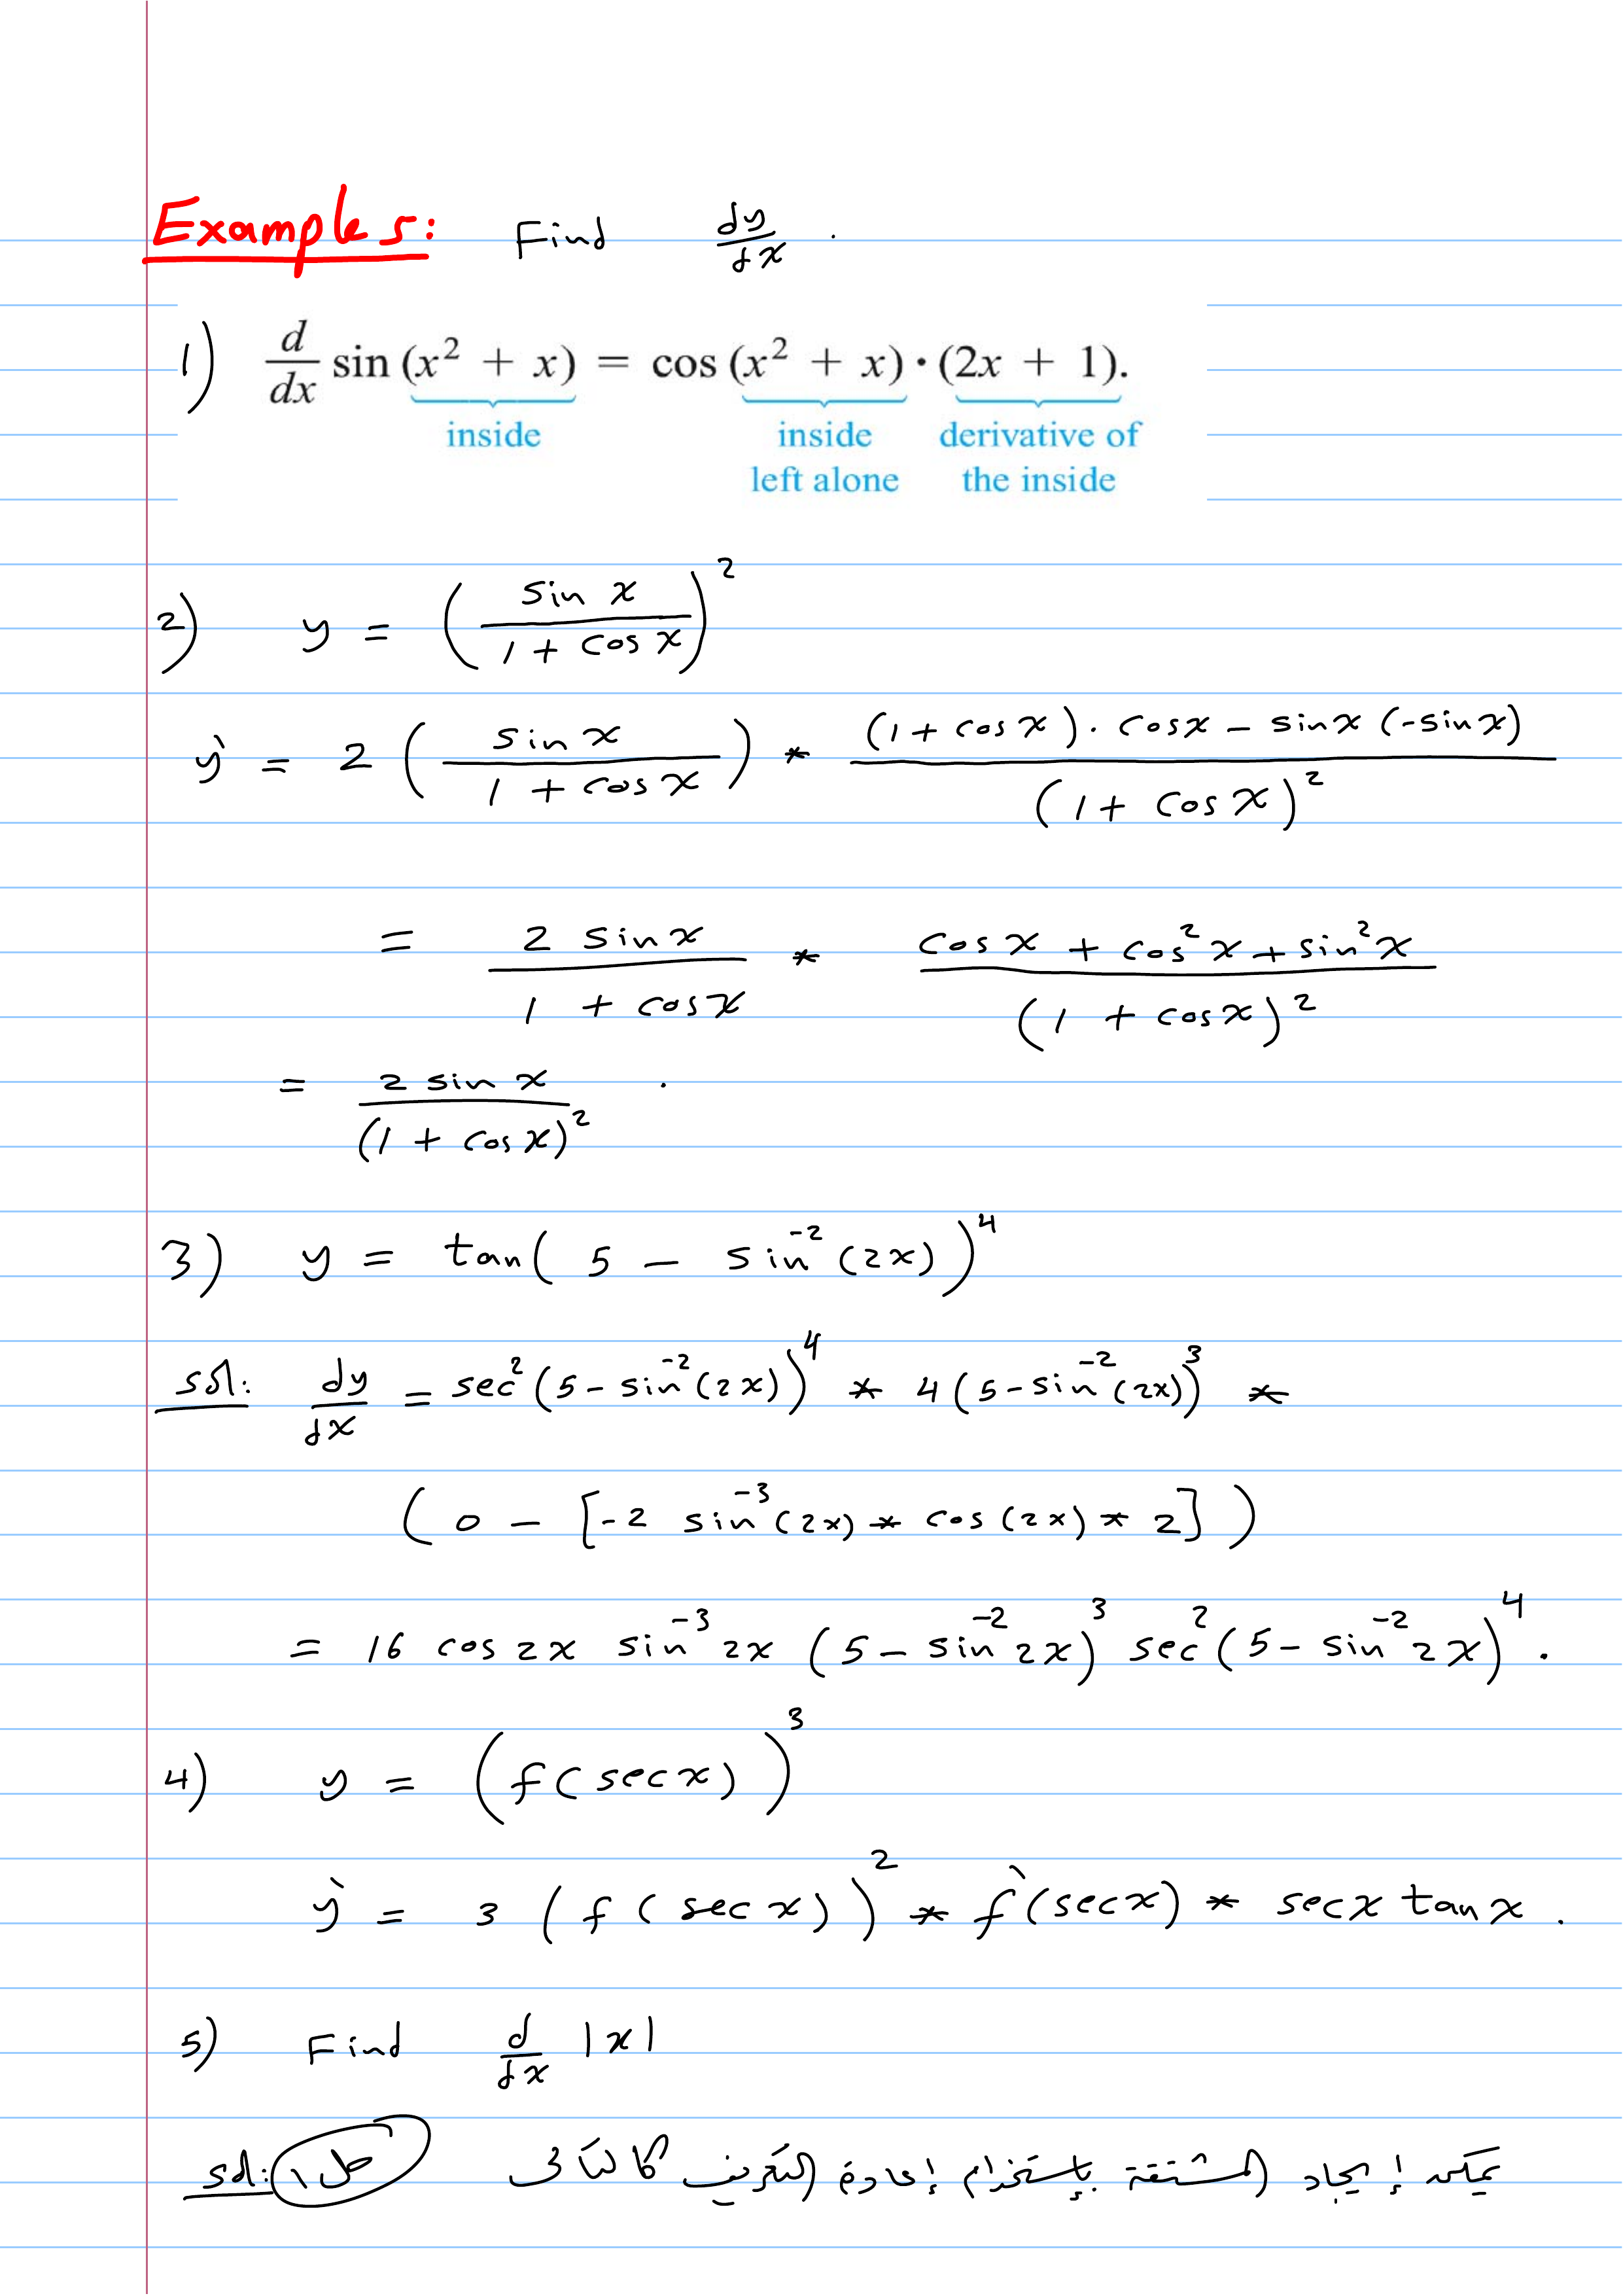 Examples: Find dy/dx .
1) d/dx sin (x² + x) = cos (x² + x) · (2x + 1).
inside inside derivative of
left alone the inside
2) y = (sin x / (1 + cos x))²
y` = 2 (sin x / (1 + cos x)) * ((1 + cos x) . cos x - sin x (-sin x)) / (1 + cos x)²
= (2 sin x) / (1 + cos x) * (cos x + cos² x + sin² x) / (1 + cos x)²
= 2 sin x / (1 + cos x)² .
3) y = tan( 5 - sin⁻² (2x) )⁴
sol: dy/dx = sec² (5 - sin⁻² (2x))⁴ * 4 (5 - sin⁻² (2x))³ *
( 0 - [-2 sin⁻³ (2x) * cos (2x) * 2] )
= 16 cos 2x sin⁻³ 2x (5 - sin⁻² 2x)³ sec² (5 - sin⁻² 2x)⁴ .
4) y = (f( sec x) )³
y` = 3 ( f ( sec x) )² * f` (sec x) * sec x tan x .
5) Find d/dx |x|
sol: حل ١ يمكن إيجاد المشتقة بإستخدام إعادة التعريف كالتالى